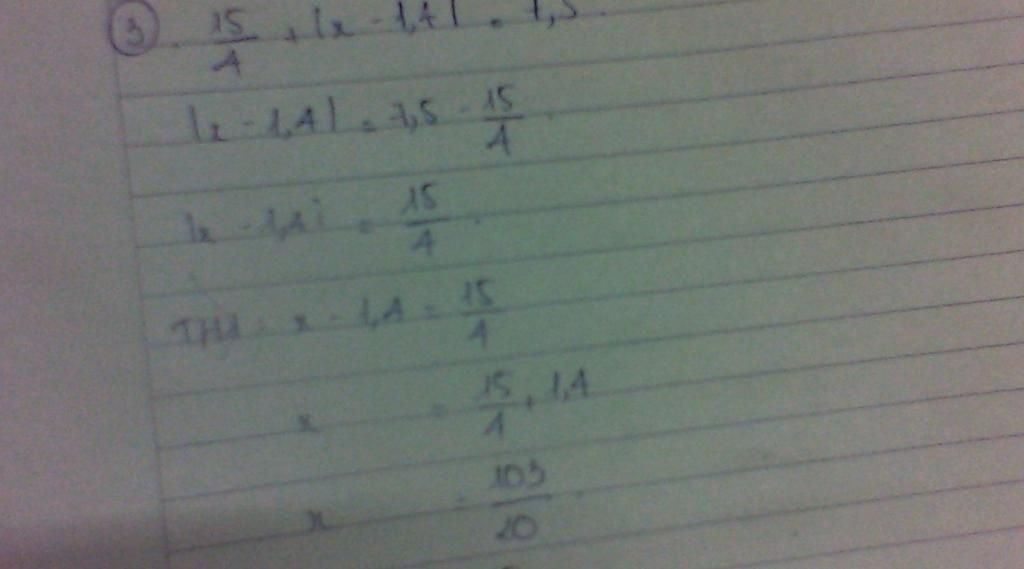 3. 15/4 + |x - 1,4| = 7,5.
|x - 1,4| = 7,5 - 15/4.
|x - 1,4| = 15/4.
TH1: x - 1,4 = 15/4
x = 15/4 + 1,4
x = 103/20.